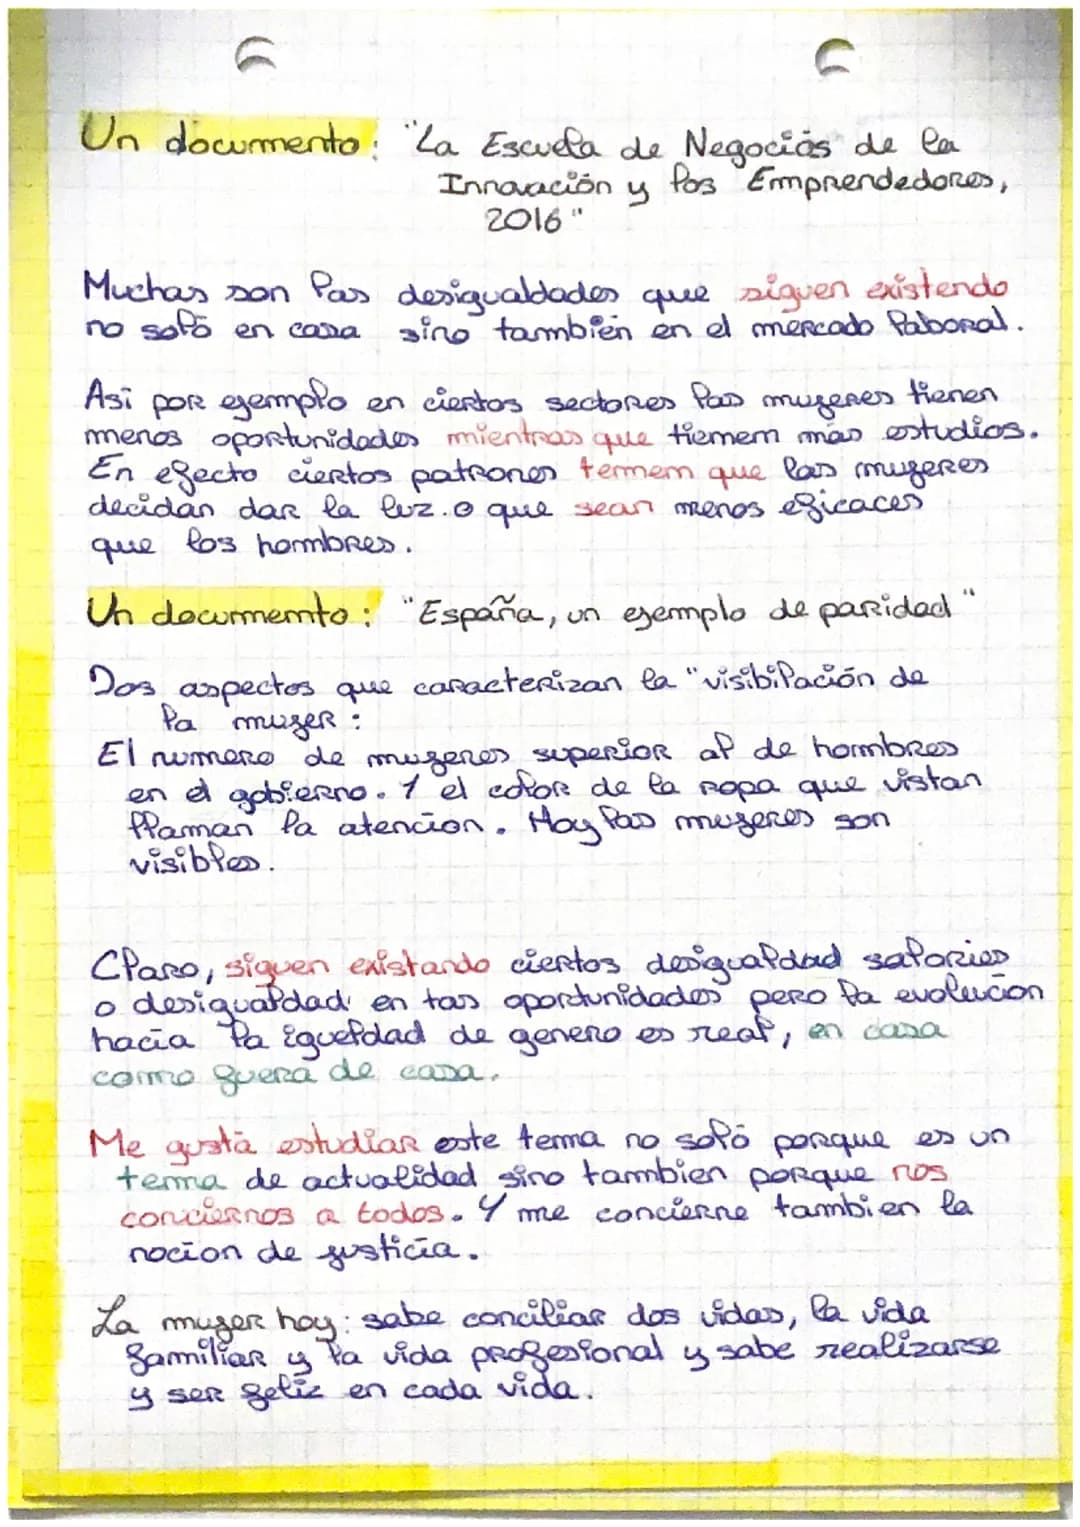 Un documento: "La Escuela de Negocios de la
Innovación y los Emprendedores,
2016"
Muchas son las desigualdades que siguen existendo
no soló en casa sino también en el mercado laboral.
Asi por ejemplo en ciertos sectores las mujeres tienen
menos oportunidades mientras que tiemem más estudios.
En efecto ciertos patrones temem que las mujeres
decidan dar la luz. o que sean menos eficaces
que los hombres.
Un documemto: "España, un ejemplo de paridad"
Dos aspectos que caracterizan la "visibilación de
la mujer:
El numero de mujeres superior al de hombres
en el gobierno. Y el color de la ropa que vistan
llaman la atencion. Hoy las mujeres son
visibles.
Claro, siguen existando ciertos desigualdad salories
o desigualdad en tas oportunidades pero la evolucion
hacia la igueldad de genero es real, en casa
como fuera de casa.
Me gustá estudiar este tema no soló porque es un
tema de actualidad sino tambien porque nos
conciernos a todos. Y me concierne tambien la
nocion de justicia.
La mujer hoy: sabe conciliar dos vidas, la vida
familiar y la vida profesional y sabe realizarse
y ser feliz en cada vida.